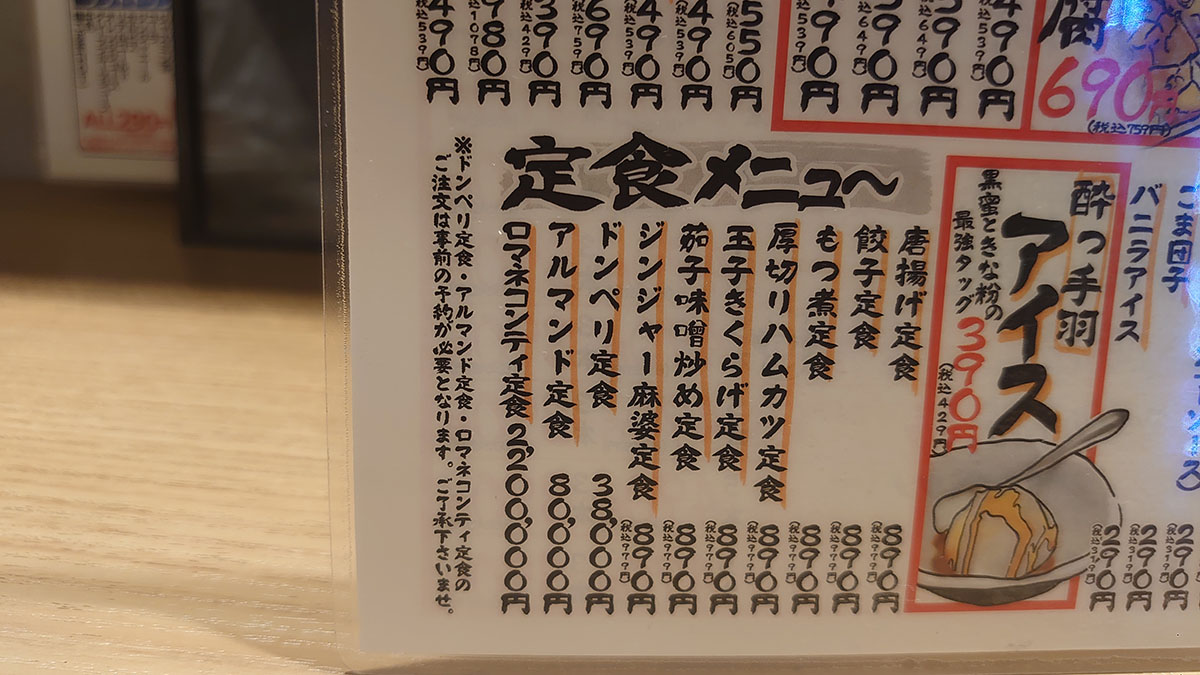 腐
690円
(税込759円)
490円
(税込539円)
590円
(税込649円)
590円
(税込649円)
490円
(税込539円)
550円
(税込605円)
490円
(税込539円)
490円
(税込539円)
690円
(税込759円)
390円
(税込429円)
980円
(税込1078円)
490円
(税込539円)
290円
(税込319円)
ごま団子
290円
(税込319円)
バニラアイス
290円
(税込319円)
酔っ手羽
アイス
黒蜜ときな粉の
最強タッグ
390円
(税込429円)
定食メニュ〜
唐揚げ定食 890円
(税込979円)
餃子定食 890円
(税込979円)
もつ煮定食 890円
(税込979円)
厚切りハムカツ定食 890円
(税込979円)
玉子きくらげ定食 890円
(税込979円)
茄子味噌炒め定食 890円
(税込979円)
ジンジャー麻婆定食 890円
(税込979円)
ドンペリ定食 38,000円
アルマンド定食 80,000円
ロマネコンティ定食 2,200,000円
※ドンペリ定食・アルマンド定食・ロマネコンティ定食の
ご注文は事前の予約が必要となります。ご了承下さいませ。